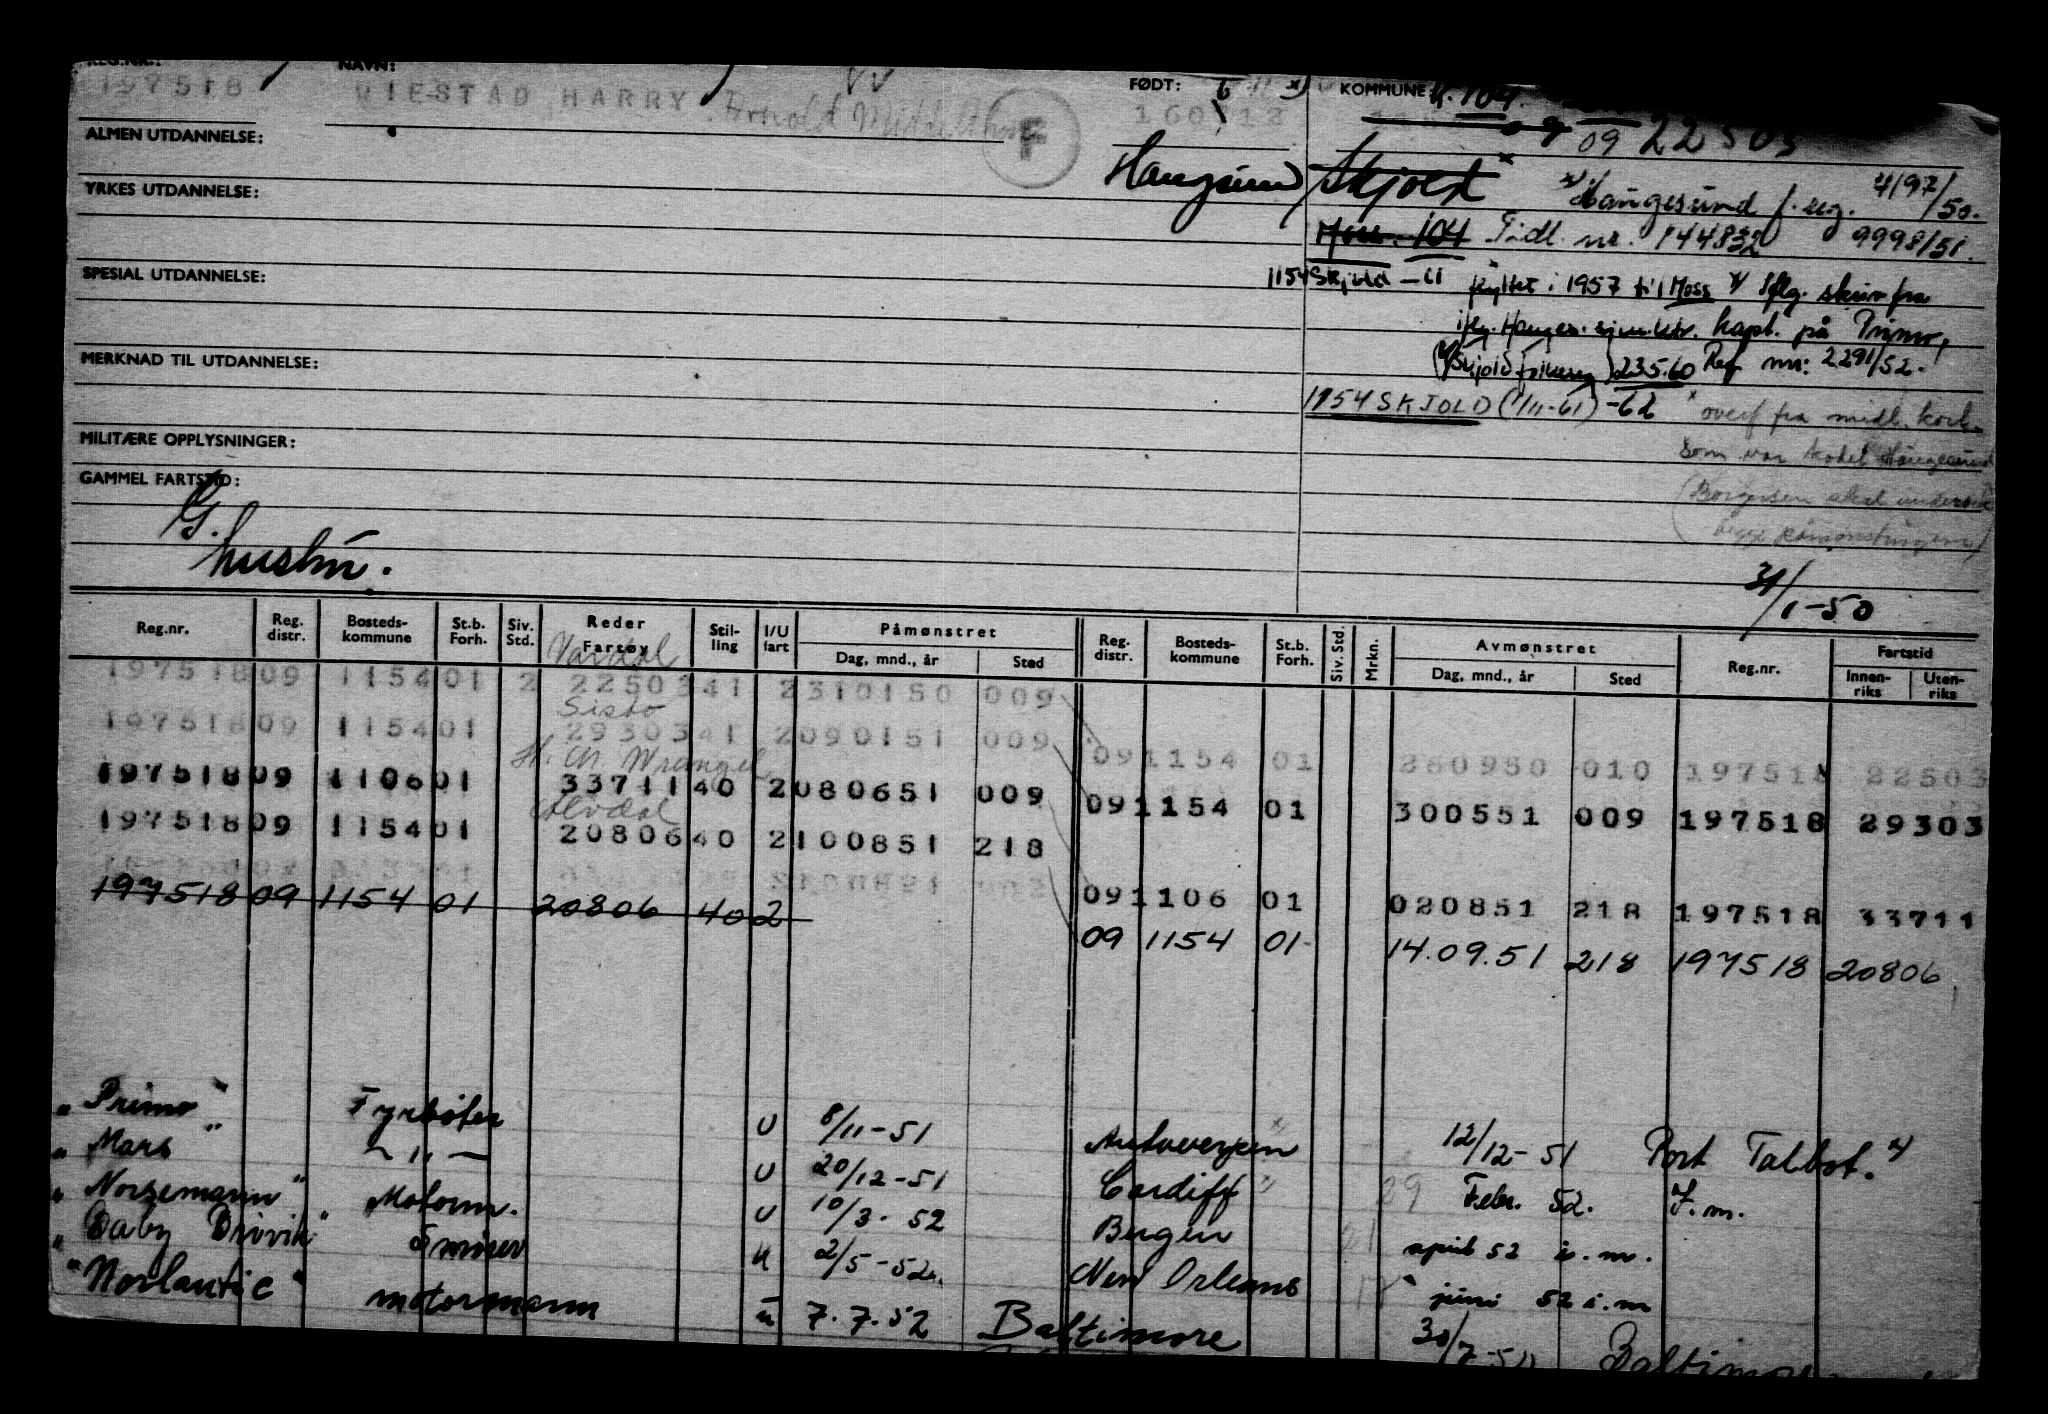 REG.NR.: NAVN: FØDT: KOMMUNE:
197518 VIESTAD HARRY
ALMEN UTDANNELSE:
F
09 22503
Haugesund Skjold
YRKES UTDANNELSE:
Haugesund f. reg. 4197/50.
Moss 104 Tidl. nr. 144832 9998/51.
SPESIAL UTDANNELSE:
1154 Skjold flyttet i 1957 til Moss Iflg. skriv fra
kapt. på Primo,
MERKNAD TIL UTDANNELSE:
23.5.60 Ref nr: 2291/52.
1154 SKJOLD (1/11-61) -62
overf fra midl. kort
MILITÆRE OPPLYSNINGER:
som var kodet Haugesund
GAMMEL FARTSTID:
G.
hustru.
31/1-50
Reg.nr. Reg. distr. Bosteds-kommune St.b. Forh. Siv. Std. Reder Fartøy Stil-ling I/U fart Påmønstret Dag, mnd., år Sted Reg. distr. Bosteds-kommune St.b. Forh. Siv. Std. Mrkn. Avmønstret Dag, mnd., år Sted Reg.nr. Fartstid Innen-riks Uten-riks
Vardal
197518 09 1154 01 2 22503 41 2 310150 009
Sisto
197518 09 1154 01 29303 41 2 090151 009
09 1154 01 280950 010 197518 22503
H. Ch. Wrangel
197518 09 1106 01 33711 40 2 080651 009
09 1154 01 300551 009 197518 29303
Alvdal
197518 09 1154 01 20806 40 2 100851 218
09 1106 01 020851 218 197518 33711
197518 09 1154 01 20806 40 2
09 1154 01 14.09.51 218 197518 20806
"Primo" Fyrbøter U 8/11-51 Antwerpen 12/12-51 Port Talbot.
"Mars" — " — U 20/12-51 Cardiff 29 Febr. 52. I.m.
"Norsemann" Motorm. U 10/3-52 Bergen april 52 i.m.
"Baby Brøvik" Smører U 2/5-52. New Orleans juni 52 i.m
"Norlantic" motormann u 7.7.52 Baltimore 30/7-52 Baltimore